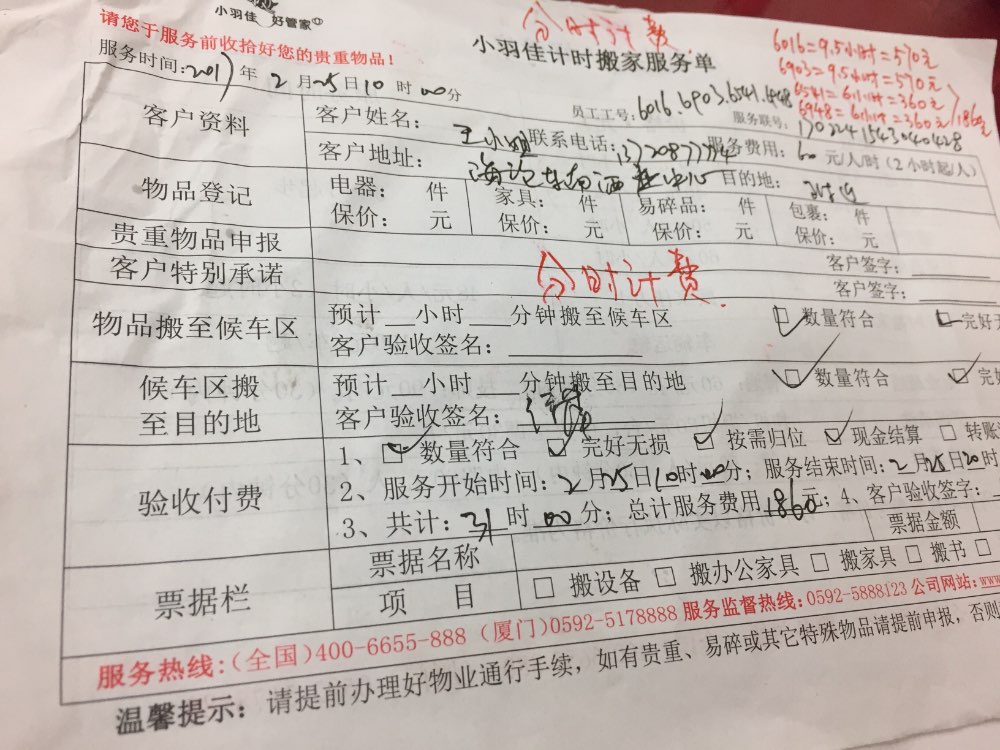 小羽佳 好管家
请您于服务前收拾好您的贵重物品！
分时计费
小羽佳计时搬家服务单
6016=9.5小时=570元
6903=9.5小时=570元
6541=6小时=360元
6948=6小时=360元
1860元
服务时间：2017年2月25日10时00分
员工工号：6016.6903.6541.6948
服务联号：1702241543040428
客户资料
客户姓名：王小姐 联系电话：13720877774 服务费用：60元/人/时（2小时起/人）
客户地址： 目的地：
物品登记
电器： 件 家具： 件 易碎品： 件 包裹： 件
保价： 元 保价： 元 保价： 元 保价： 元
贵重物品申报 客户签字：
客户特别承诺 分时计费 客户签字：
物品搬至候车区
预计 小时 分钟搬至候车区 数量符合 完好
客户验收签名：
候车区搬至目的地
预计 小时 分钟搬至目的地 数量符合 完好
客户验收签名：
验收付费
1、数量符合 完好无损 按需归位 现金结算 转账
2、服务开始时间：2月25日10时00分；服务结束时间：2月25日20时
3、共计：31时00分；总计服务费用1860元；4、客户验收签字：
票据栏
票据名称 票据金额
项 目 搬设备 搬办公家具 搬家具 搬书
服务热线：（全国）400-6655-888（厦门）0592-5178888 服务监督热线：0592-5888123 公司网站：www
温馨提示：请提前办理好物业通行手续，如有贵重、易碎或其它特殊物品请提前申报，否则